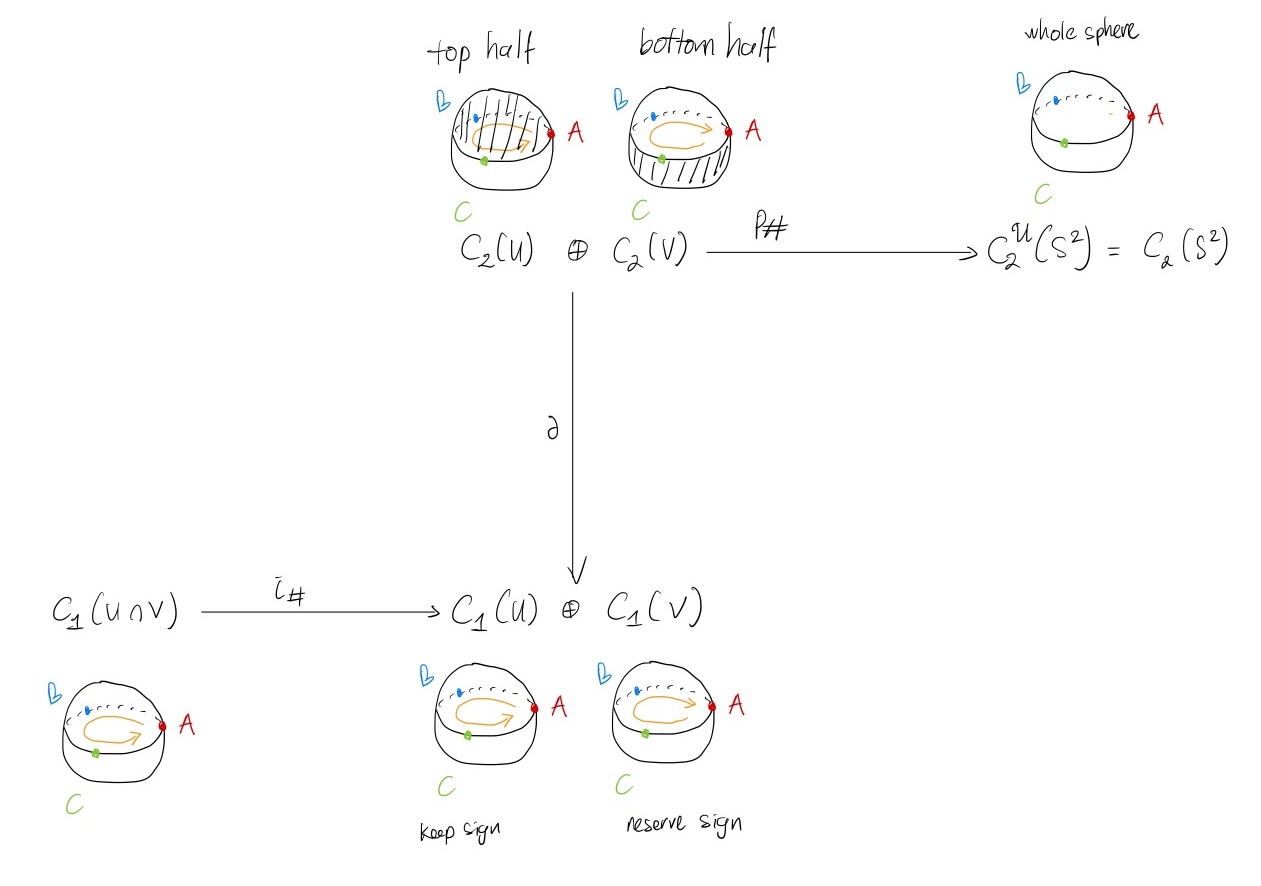 top half bottom half whole sphere
B A B A B A
C C C
C₂(U) ⊕ C₂(V) P# C₂ᵁ(S²) = C₂(S²)
∂
C₁(U∩V) i# C₁(U) ⊕ C₁(V)
B A B A B A
C C C
keep sign reserve sign